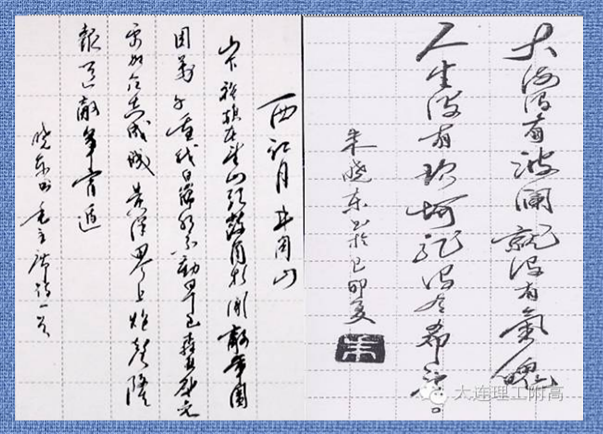 大海没有波澜就没有氣魄
人生没有坎坷就没有希望。
朱晓东书於己卯夏
朱
西江月 井冈山
山下旌旗在望山头鼓角相闻敵军围
困万千重我自岿然不动早已森严壁垒
更加众志成城黄洋界上炮声隆
报道敵军宵遁
晓东书毛主席诗一首
大连理工附高